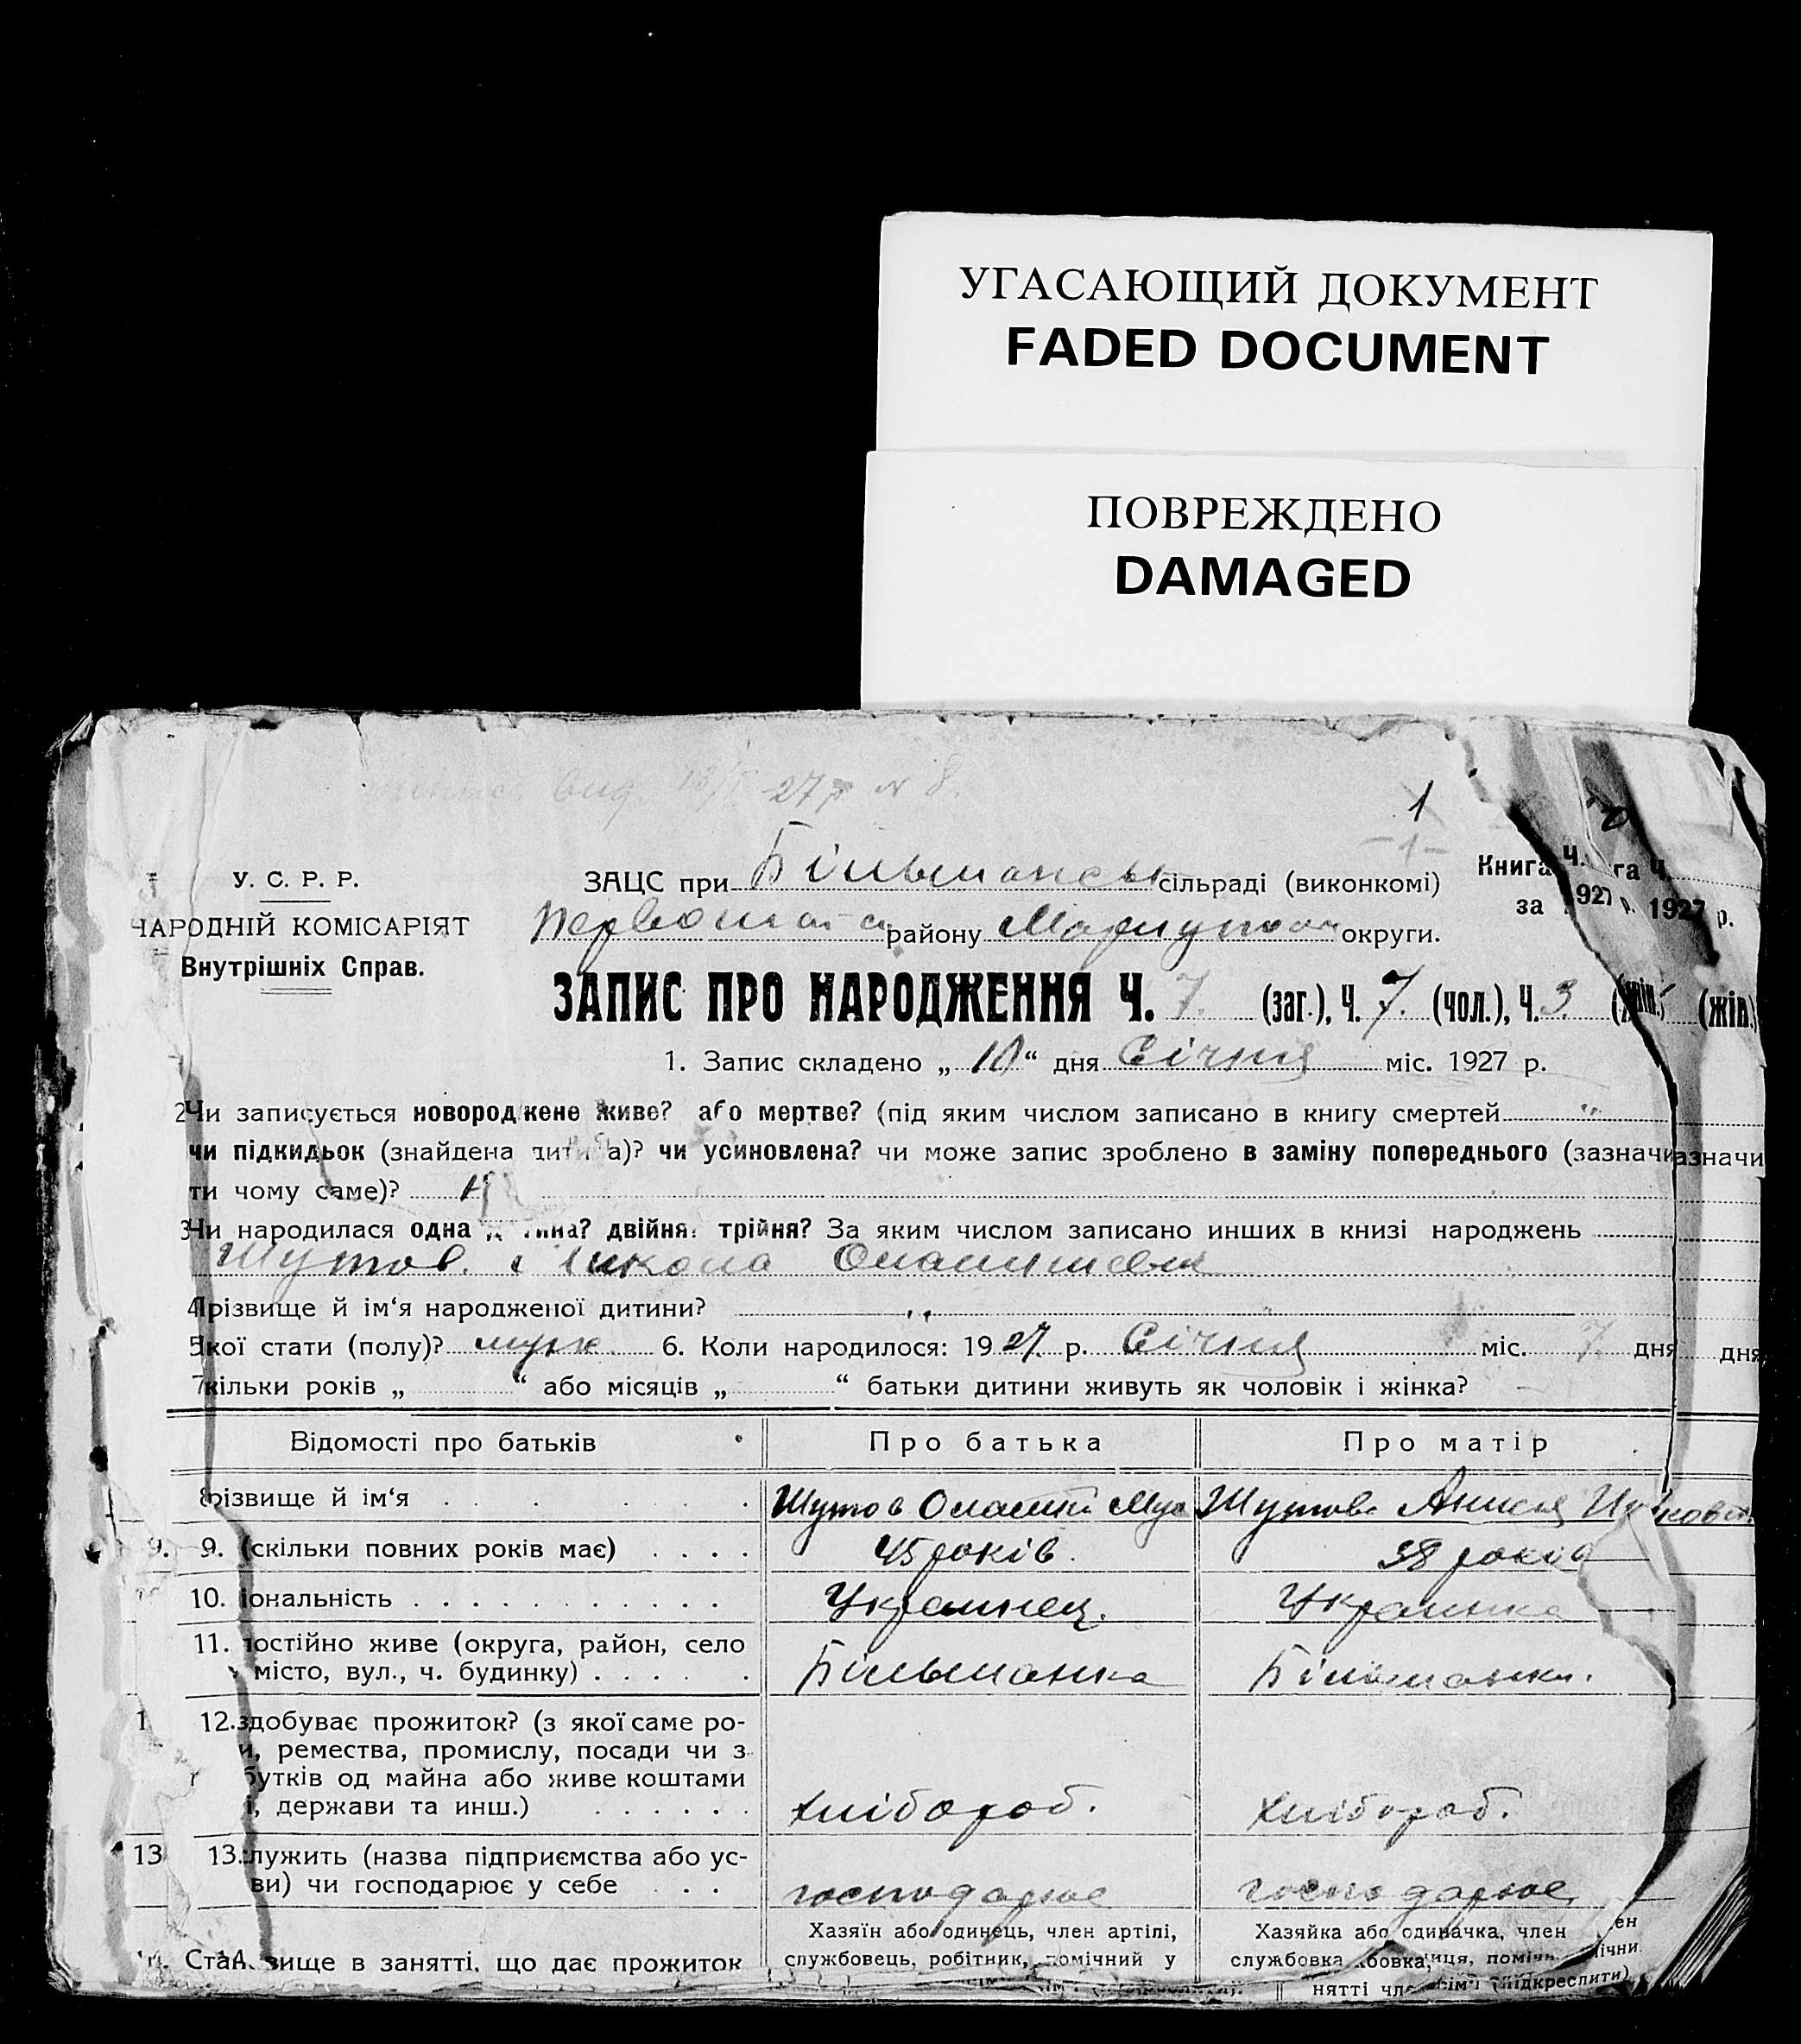 УГАСАЮЩИЙ ДОКУМЕНТ
FADED DOCUMENT
ПОВРЕЖДЕНО
DAMAGED
27 р N 8.
1
-1-
У. С. Р. Р.
НАРОДНІЙ КОМІСАРІЯТ
Внутрішніх Справ.
ЗАЦС при Більманськ сільраді (виконкомі)
Книга Ч. га Ч.
за 1927 р. 1927 р.
району округи.
ЗАПИС ПРО НАРОДЖЕННЯ Ч. 7. (заг.), Ч. 7. (чол.), Ч. 3. (жін.) (жін.)
1. Запис складено „ 10 “ дня Січня міс. 1927 р.
2 Чи записується новороджене живе? або мертве? (під яким числом записано в книгу смертей „
чи підкидьок (знайдена дитина)? чи усиновлена? чи може запис зроблено в заміну попереднього (зазначи азначи
ти чому саме)?
3 Чи народилася одна дитина? двійня? трійня? За яким числом записано инших в книзі народжень
Шутов. Микола
4 Прізвище й ім‘я народженої дитини?
5 Якої стати (полу)? муж. 6. Коли народилося: 19 27. р. Січня міс. 7. дня дня
7 кільки років „ “ або місяців „ “ батьки дитини живуть як чоловік і жінка? –
Відомості про батьків Про батька Про матір
8 різвище й ім‘я . . . . . . Шутов Шутова
9. 9. (скільки повних років має) . . . . 45 років. 38 років
10. іональність . . . . . . . . . . . . Украинец. Украинка
11. постійно живе (округа, район, село
місто, вул., ч. будинку) . . . . . Більманка Більманка.
1 12. здобуває прожиток? (з якої саме ро-
и, ремества, промислу, посади чи з
бутків од майна або живе коштами
і, держави та инш.) . . . . . . хлібороб. хлібороб.
13 13. служить (назва підприємства або ус-
ви) чи господарює у себе . . . господарює господарює
Хазяїн або одинець, член артілі, Хазяйка або одиначка, член ен
14. Становище в занятті, що дає прожиток службовець, робітник, помічний у службовка бовка, иця, поміч ічни
нятті сім‘ї (підкреслити)